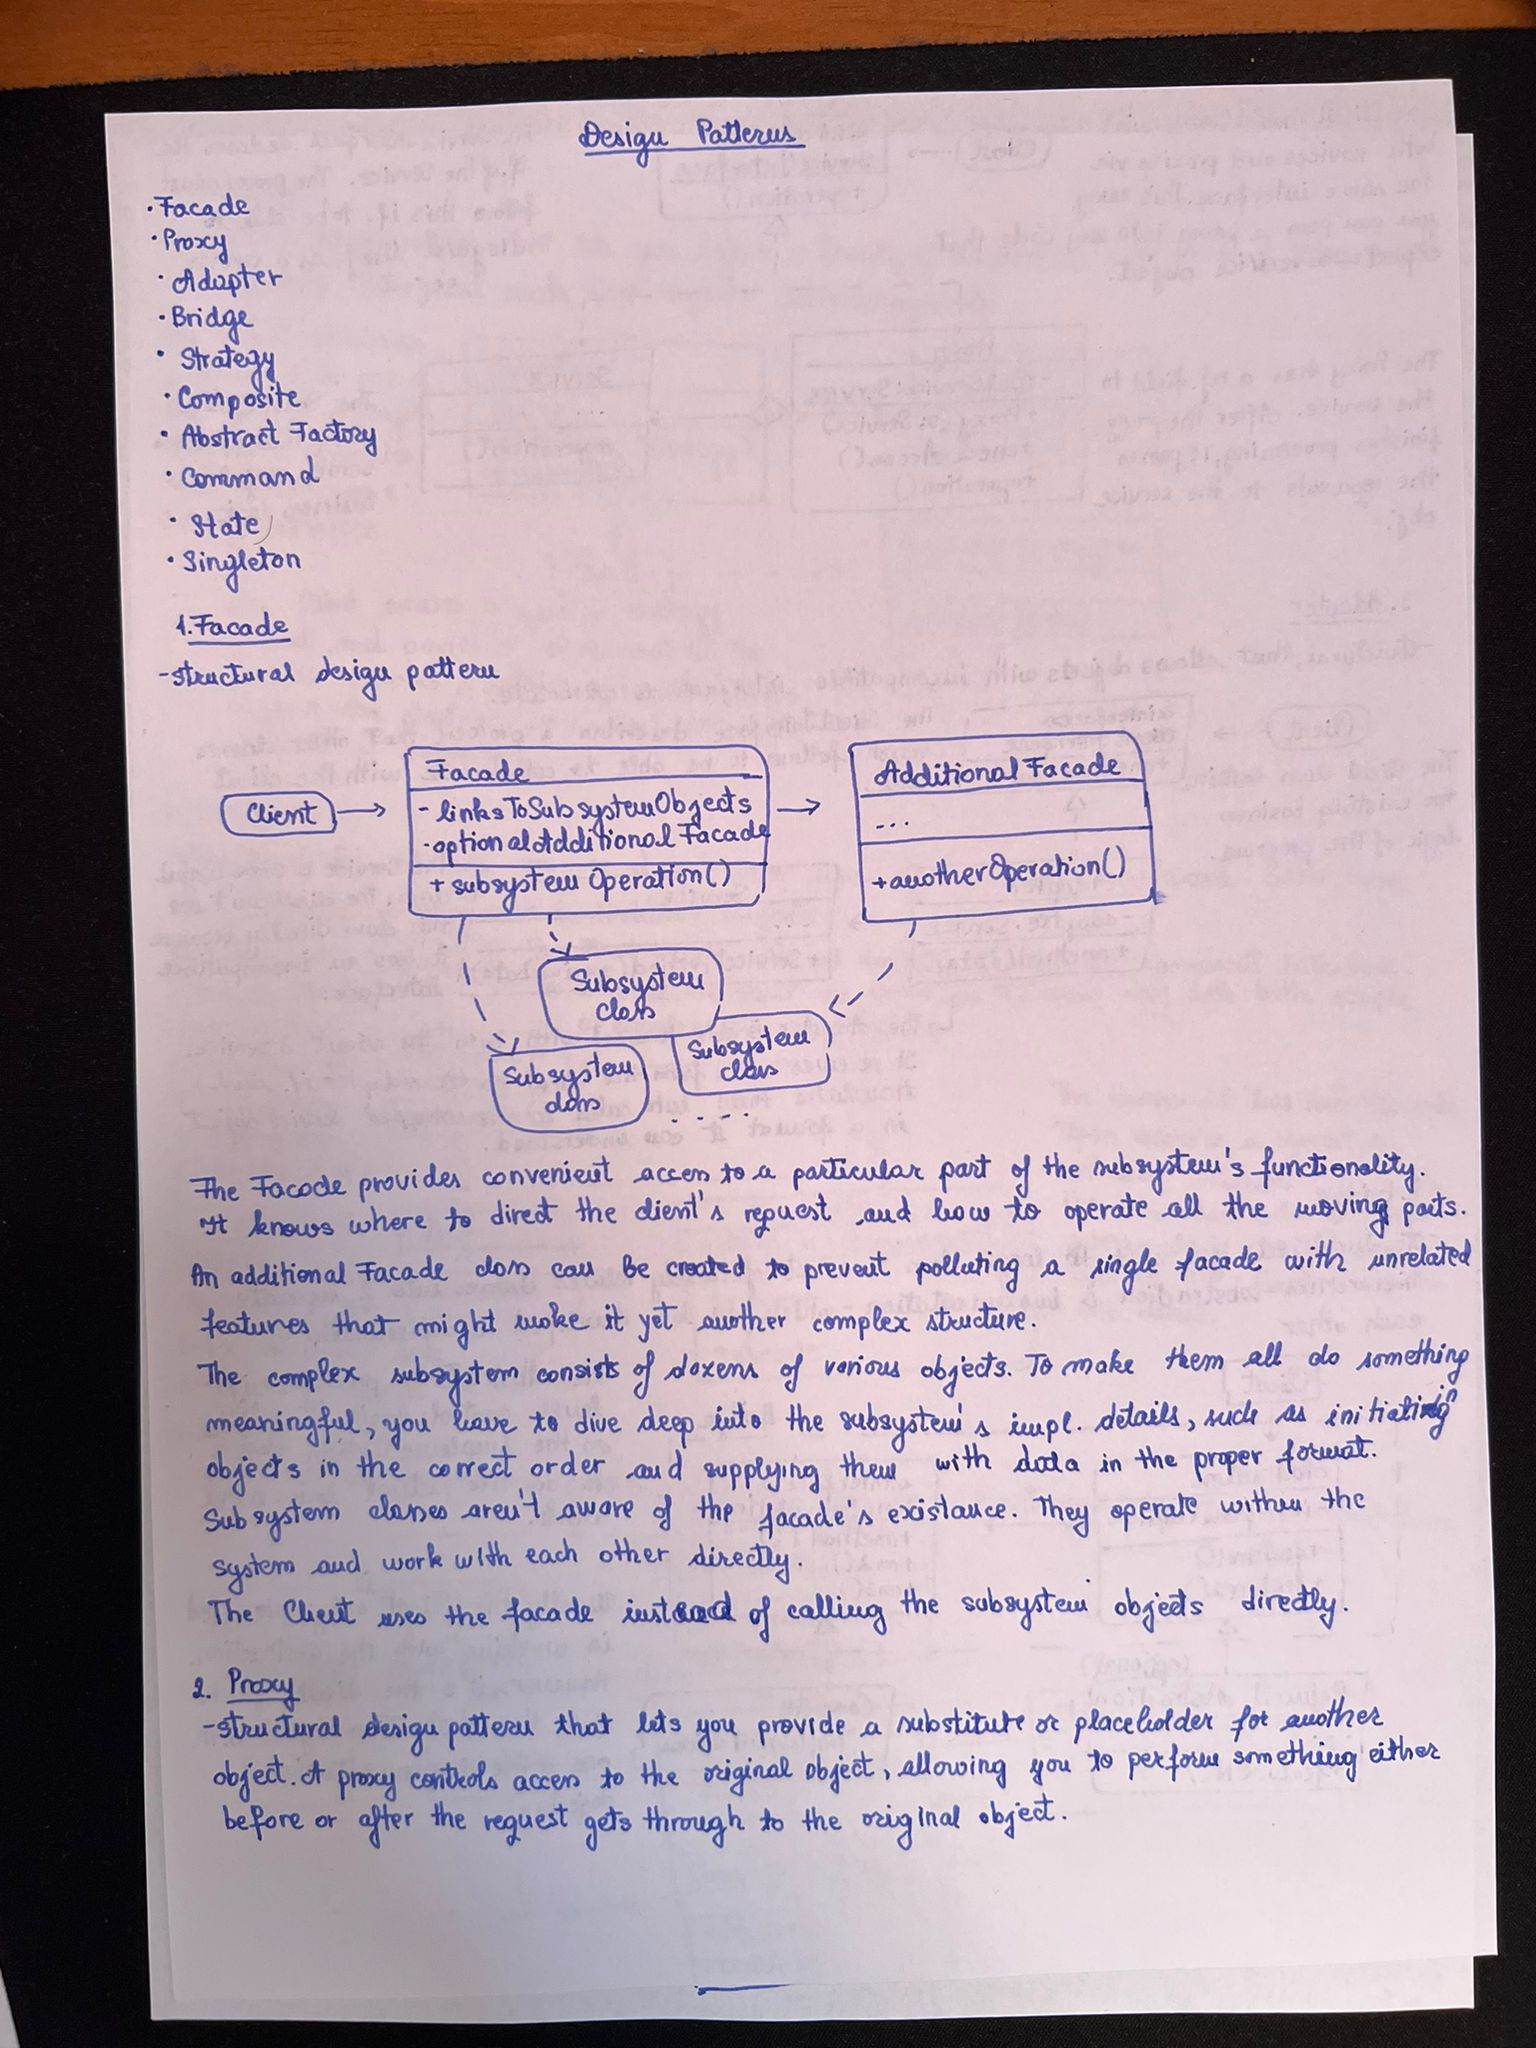 Design Patterns
· Facade
· Proxy
· Adapter
· Bridge
· Strategy
· Composite
· Abstract Factory
· Command
· State
· Singleton
1. Facade
- structural design pattern
Client
Facade
- linksToSubsystemObjects
- optionalAdditionalFacade
+ subsystemOperation()
Additional Facade
...
+anotherOperation()
Subsystem
class
Subsystem
class
Subsystem
class
.....
The Facade provides convenient access to a particular part of the subsystem's functionality.
It knows where to direct the client's request and how to operate all the moving parts.
An additional Facade class can be created to prevent polluting a single facade with unrelated
features that might make it yet another complex structure.
The complex subsystem consists of dozens of various objects. To make them all do something
meaningful, you have to dive deep into the subsystem's impl. details, such as initiating
objects in the correct order and supplying them with data in the proper format.
Subsystem classes aren't aware of the facade's existance. They operate within the
system and work with each other directly.
The Client uses the facade instead of calling the subsystem objects directly.
2. Proxy
- structural design pattern that lets you provide a substitute or placeholder for another
object. A proxy controls access to the original object, allowing you to perform something either
before or after the request gets through to the original object.